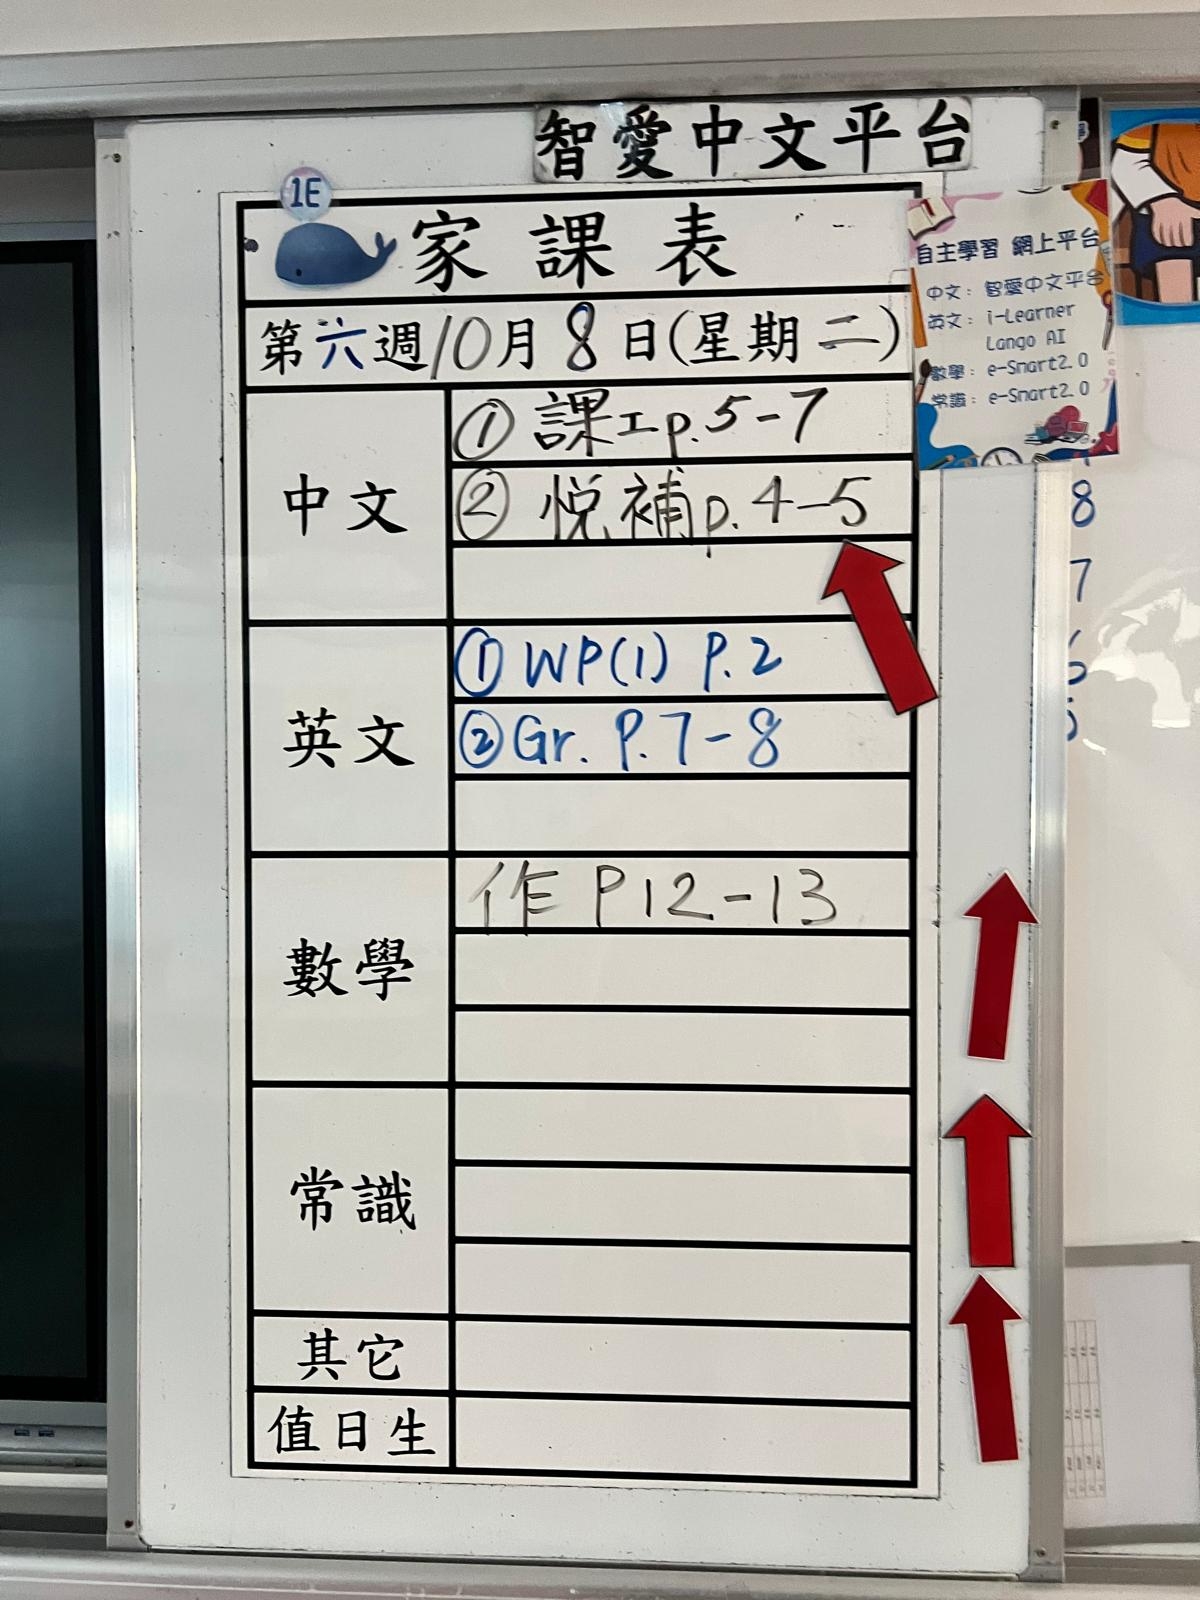 智愛中文平台
1E
家課表
第六週10月8日(星期二)
中文
① 課工p.5-7
② 悅補p.4-5
英文
① WP(1) P.2
② Gr. P.7-8
數學
作 P12-13
常識
其它
值日生
自主學習 網上平台
中文: 智愛中文平台
英文: i-Learner
Lango AI
數學: e-Smart2.0
常識: e-Smart2.0
8
7